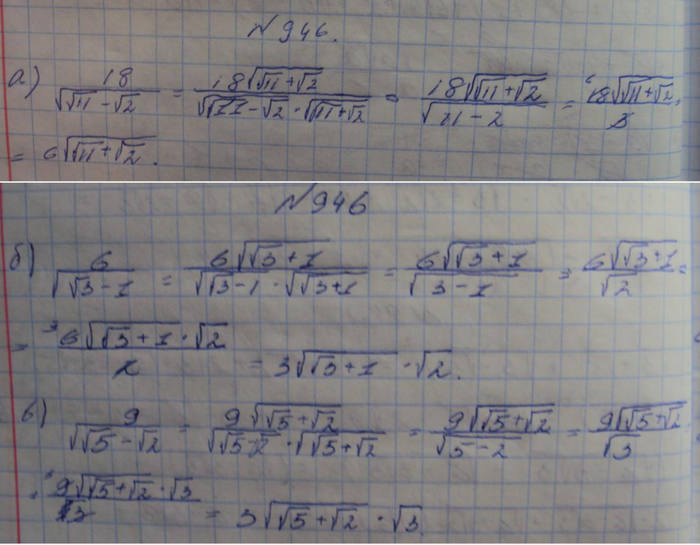 №946.
а) 18/√(√11 − √2) = 18√(√11 + √2)/(√(√11 − √2) · √(√11 + √2)) = 18√(√11 + √2)/√(11 − 2) = ⁶18√(√11 + √2)/3 =
= 6√(√11 + √2).
№946
б) 6/√(√3 − 1) = 6√(√3 + 1)/(√(√3 − 1) · √(√3 + 1)) = 6√(√3 + 1)/√(3 − 1) = 6√(√3 + 1)/√2 =
= ³6√(√3 + 1) · √2/2 = 3√(√3 + 1) · √2.
в) 9/√(√5 − √2) = 9√(√5 + √2)/(√(√5 − √2) · √(√5 + √2)) = 9√(√5 + √2)/√(5 − 2) = 9√(√5 + √2)/√3
= ³9√(√5 + √2) · √3/3 = 3√(√5 + √2) · √3